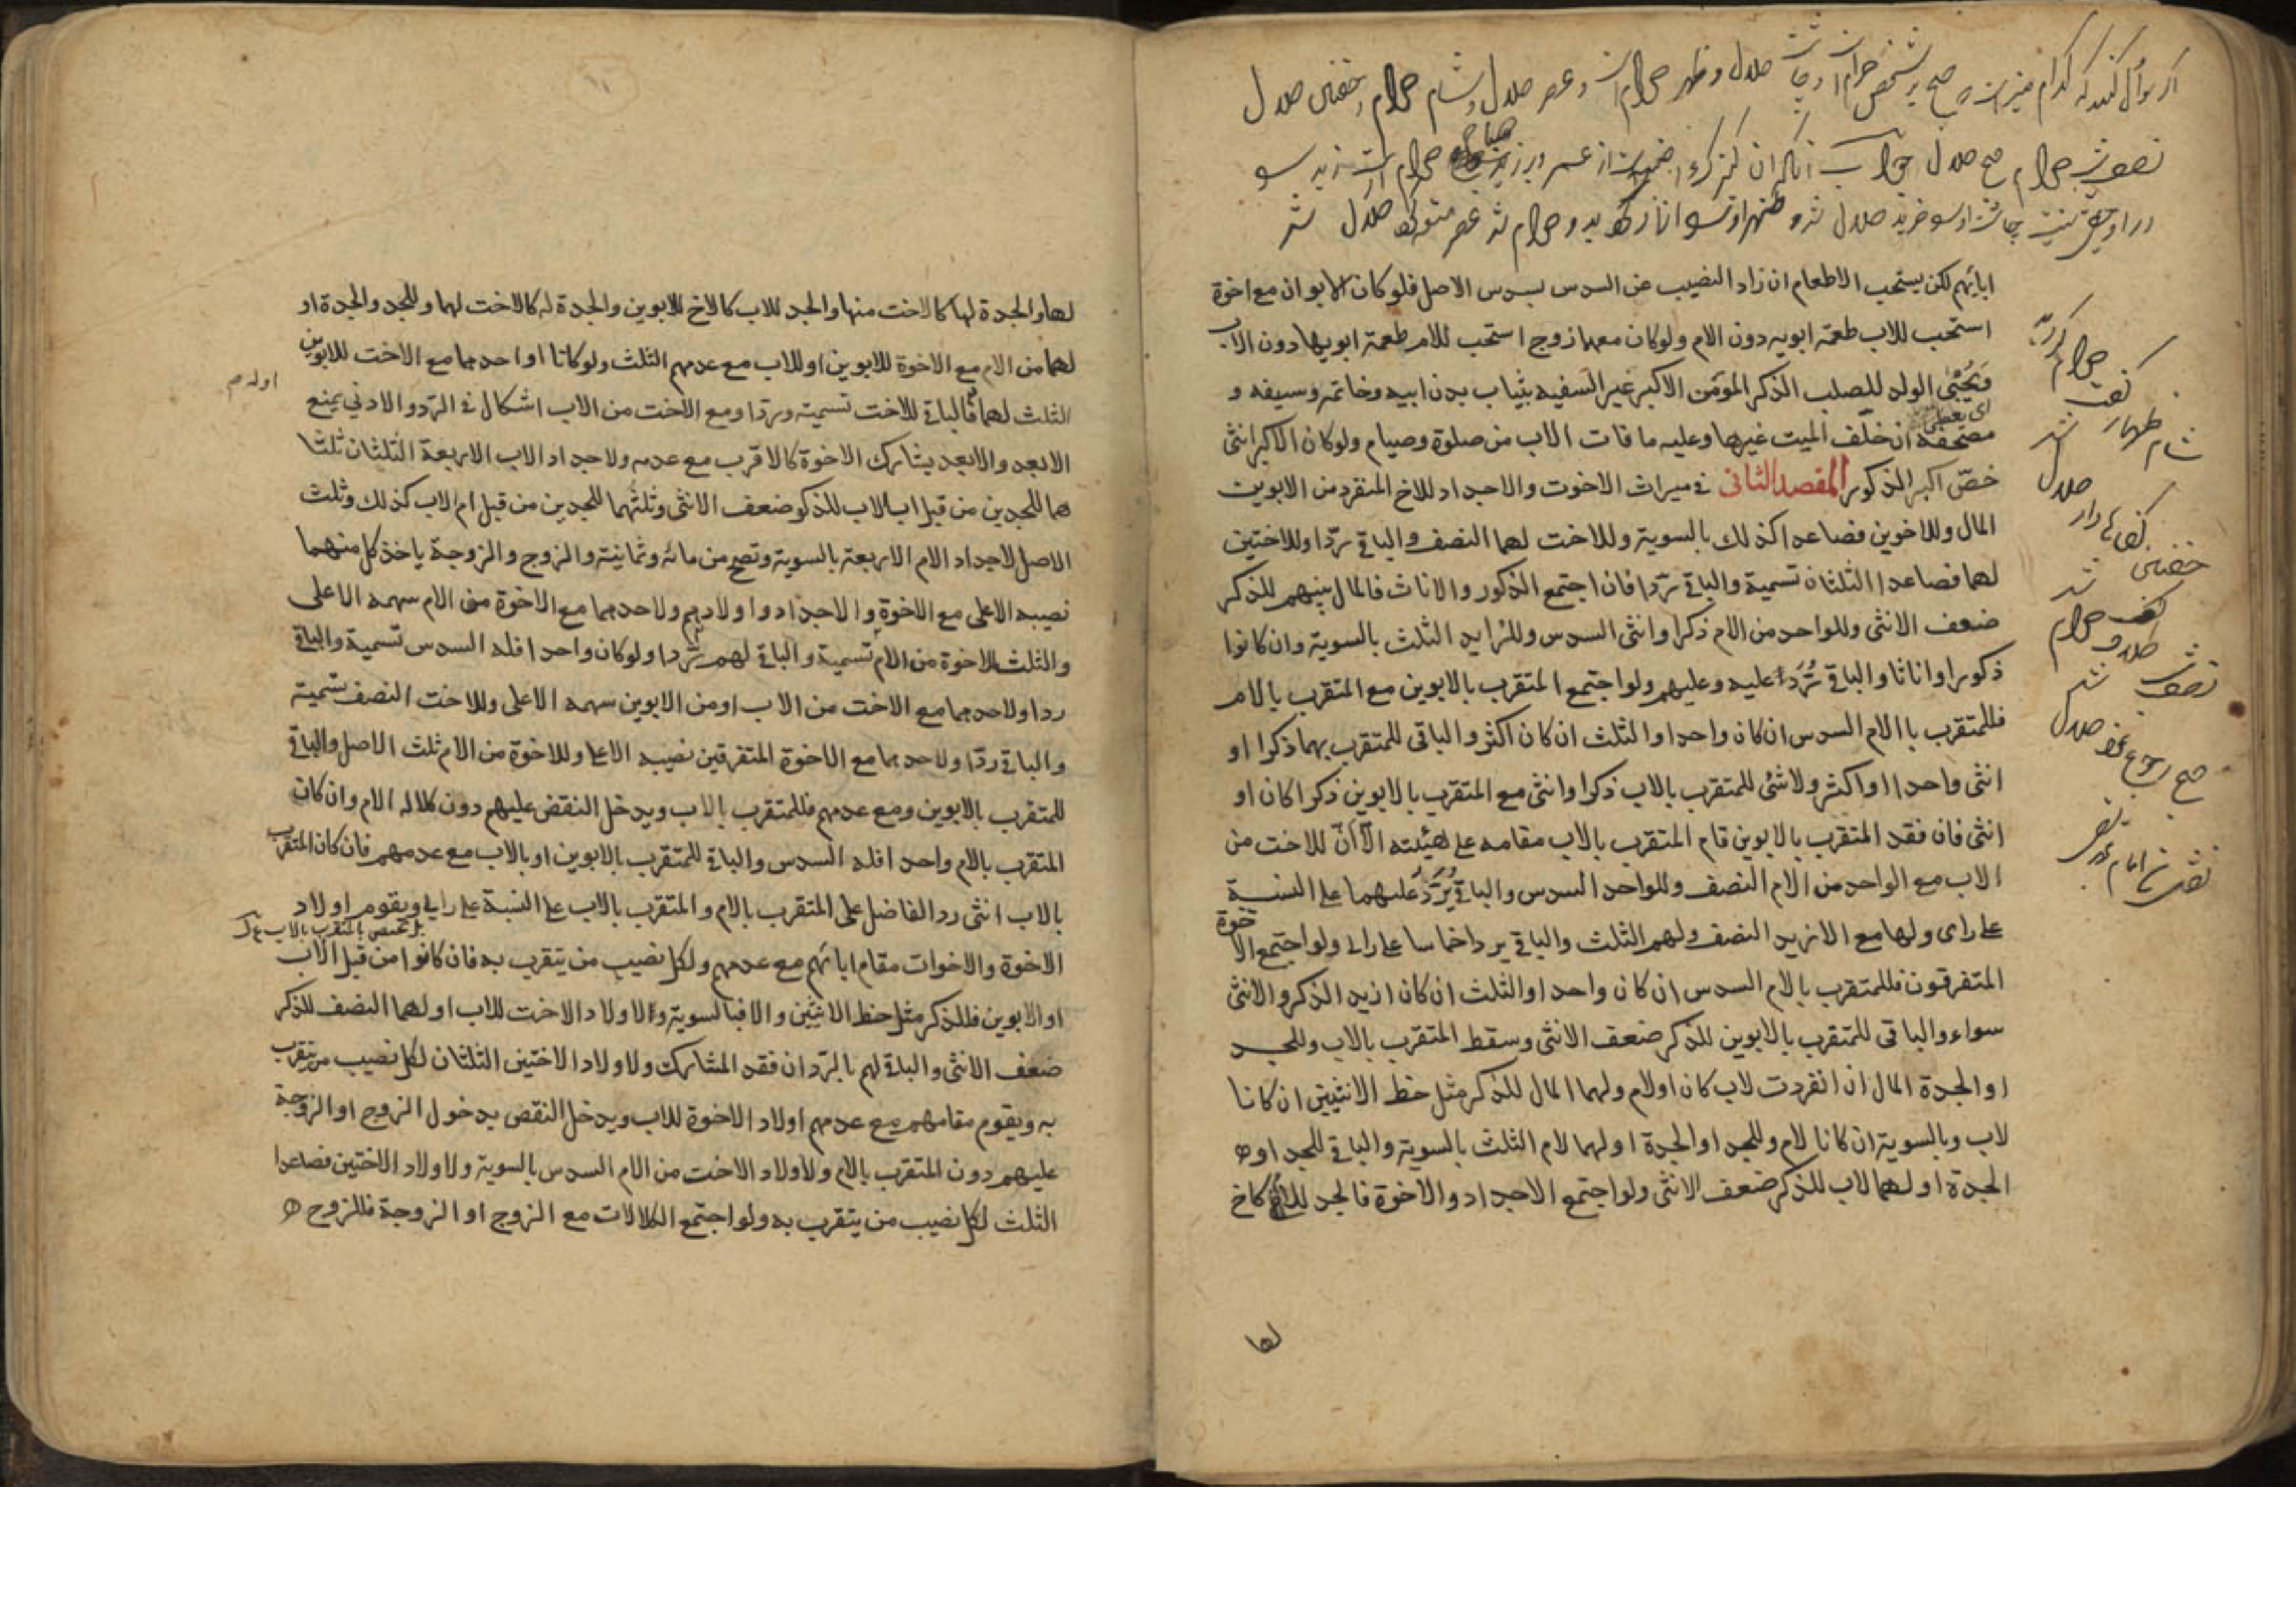 اگر سوال کنند که کدام چیز است صبح بر شخص حرام است و چاشت حلال و ظهر حرام است و عصر حلال و شام حرام و خفتن حلال
نصف شب حرام صبح حلال جواب
حلال شد و ظهر حرام شد عصر حلال شد
ابائهم لكن يستحب الاطعام ان زاد النصيب عن السدس بسدس الاصل فلو كان الابوان مع اخوة
استحب للاب طعمة ابويه دون الام ولو كان معهما زوج استحب للام طعمة ابويها دون الاب
ويحبى الولد للصلب الذكر المؤمن الاكبر غير السفيه بثياب بدن ابيه وخاتمه وسيفه و
اى يعطى
مصحفه ان خلف الميت غيرها وعليه ما فات الاب من صلوة وصيام ولو كان الاكبر انثى
خص اكبر الذكور المقصد الثانى في ميراث الاخوت والاجداد للاخ المنفرد من الابوين
المال وللاخوين فصاعدا كذلك بالسوية وللاخت لهما النصف والباقي ردا وللاختين
لهما فصاعدا الثلثان تسمية والباقي ردا فان اجتمع الذكور والاناث فالمال بينهم للذكر
ضعف الانثى وللواحد من الام ذكرا وانثى السدس وللزايد الثلث بالسوية وان كانوا
ذكورا او اناثا والباقي يرد عليه وعليهم ولو اجتمع المتقرب بالابوين مع المتقرب بالام
فللمتقرب باالام السدس ان كان واحدا والثلث ان كان اكثر والباقى للمتقرب بهما ذكرا او
انثى واحدا او اكثر ولا شئ للمتقرب بالاب ذكرا وانثى مع المتقرب بالابوين ذكرا كان او
انثى فان فقد المتقرب بالابوين قام المتقرب بالاب مقامه على هيئته الا ان للاخت من
الاب مع الواحد من الام النصف وللواحد السدس والباقي يرد عليهما على النسبة
على راى ولها مع الازيد النصف ولهم الثلث والباقي يرد اخماسا على راى ولو اجتمع الاخوة
المتفرقون فللمتقرب بالام السدس ان كان واحدا والثلث ان كان ازيد الذكر والانثى
سواء والباقى للمتقرب بالابوين للذكر ضعف الانثى وسقط المتقرب بالاب وللجد
او الجدة المال ان انفردت لاب كان اولام ولهما المال للذكر مثل حظ الانثيين ان كانا
لاب وبالسوية ان كانا لام وللجد او الجدة او لهما لام الثلث بالسوية والباقي للجد او
الجدة او لهما لاب للذكر ضعف الانثى ولو اجتمع الاجداد والاخوة فالجد للام كاخ
لها
حرام
شد
حلال
خفتن
شد
حرام
شد
صبح
حلال
لها والجدة لها كالاخت منها والجد للاب كالاخ للابوين والجدة له كالاخت لهما وللجد والجدة او
لهما من الام مع الاخوة للابوين او للاب مع عدمهم الثلث ولو كانا او احدهما مع الاخت للابوين
الثلث لهما فالباقي للاخت تسمية وردا ومع الاخت من الاب اشكال في الرد والادنى يمنع
الابعد والابعد يشارك الاخوة كالاقرب مع عدمه ولاجداد الاب الاربعة الثلثان ثلثا
هما للجدين من قبل اب الاب للذكر ضعف الانثى وثلثهما للجدين من قبل ام الاب كذلك وثلث
الاصل لاجداد الام الاربعة بالسوية وتصح من مائة وثمانية والزوج والزوجة ياخذ كل منهما
نصيبه الاعلى مع الاخوة والاجداد واولادهم ولاحدهما مع الاخوة من الام سهمه الاعلى
والثلث للاخوة من الام تسمية والباقي لهم ردا ولو كان واحدا فله السدس تسمية والباقي
ردا ولاحدهما مع الاخت من الاب او من الابوين سهمه الاعلى وللاخت النصف تسمية
والباقي ردا ولاحدهما مع الاخوة المتفرقين نصيبه الاعلى وللاخوة من الام ثلث الاصل والباقي
للمتقرب بالابوين ومع عدمهم فللمتقرب بالاب ويدخل النقض عليهم دون كلاله الام وان كان
المتقرب بالام واحدا فله السدس والباقي للمتقرب بالابوين او بالاب مع عدمهم فان كان المتقرب
بالاب انثى رد الفاضل على المتقرب بالام و المتقرب بالاب على النسبة على راى ويقوم اولاد
بل يختص بالمتقرب بالاب
الاخوة والاخوات مقام ابائهم مع عدمهم ولكل نصيب من يتقرب به فان كانوا من قبل الاب
او الابوين فللذكر مثل حظ الانثيين والا فبالسوية ولاولاد الاخت للاب او لهما النصف للذكر
ضعف الانثى والباقي لهم بالرد ان فقد المشارك ولاولاد الاختين الثلثان لكل نصيب من يتقرب
به ويقوم مقامهم مع عدمهم اولاد الاخوة للاب ويدخل النقص بدخول الزوج او الزوجة
عليهم دون المتقرب بالام ولاولاد الاخت من الام السدس بالسوية ولاولاد الاختين فصاعدا
الثلث لكل نصيب من يتقرب به ولو اجتمع الكلالات مع الزوج او الزوجة فللزوج